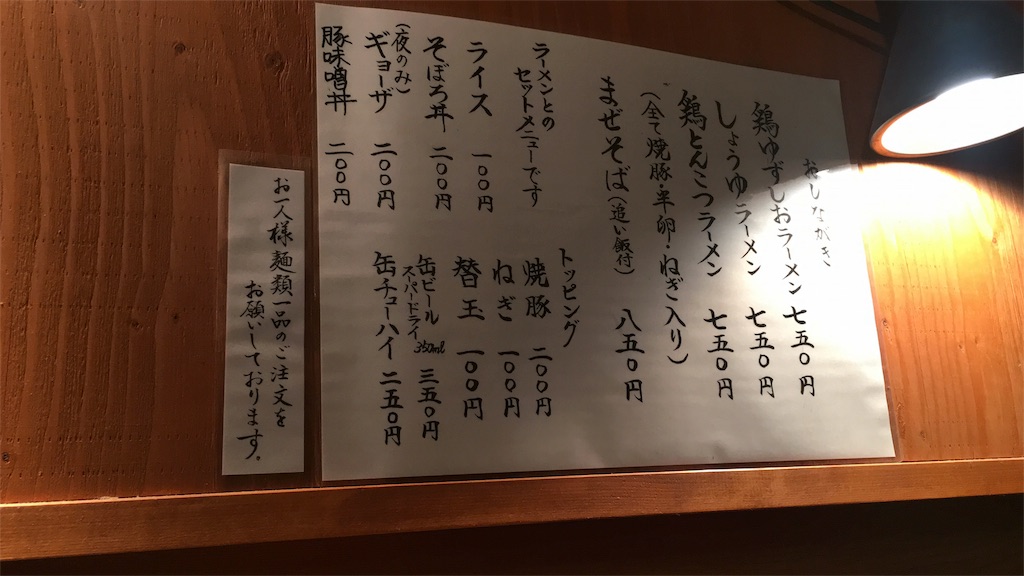 おしながき
鶏ゆずしおラーメン 七五〇円
しょうゆラーメン 七五〇円
鶏とんこつラーメン 七五〇円
(全て焼豚・半卵・ねぎ入り)
まぜそば(追い飯付) 八五〇円
トッピング
焼豚 二〇〇円
ねぎ 一〇〇円
替玉 一〇〇円
缶ビール 三五〇円
スーパードライ 350ml
缶チューハイ 二五〇円
ラーメンとの
セットメニューです
ライス 一〇〇円
そぼろ丼 二〇〇円
ギョーザ 二〇〇円
(夜のみ)
豚味噌丼 二〇〇円
お一人様麺類一品のご注文を
お願いしております。